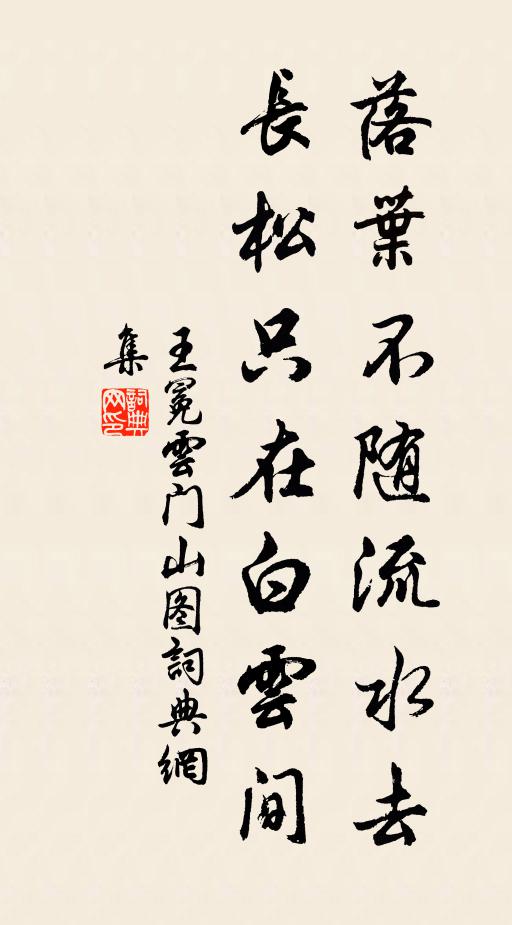 落葉不随流水去
長松只在白雲间
王冕雲门山图詞典網
集
詞典
网印